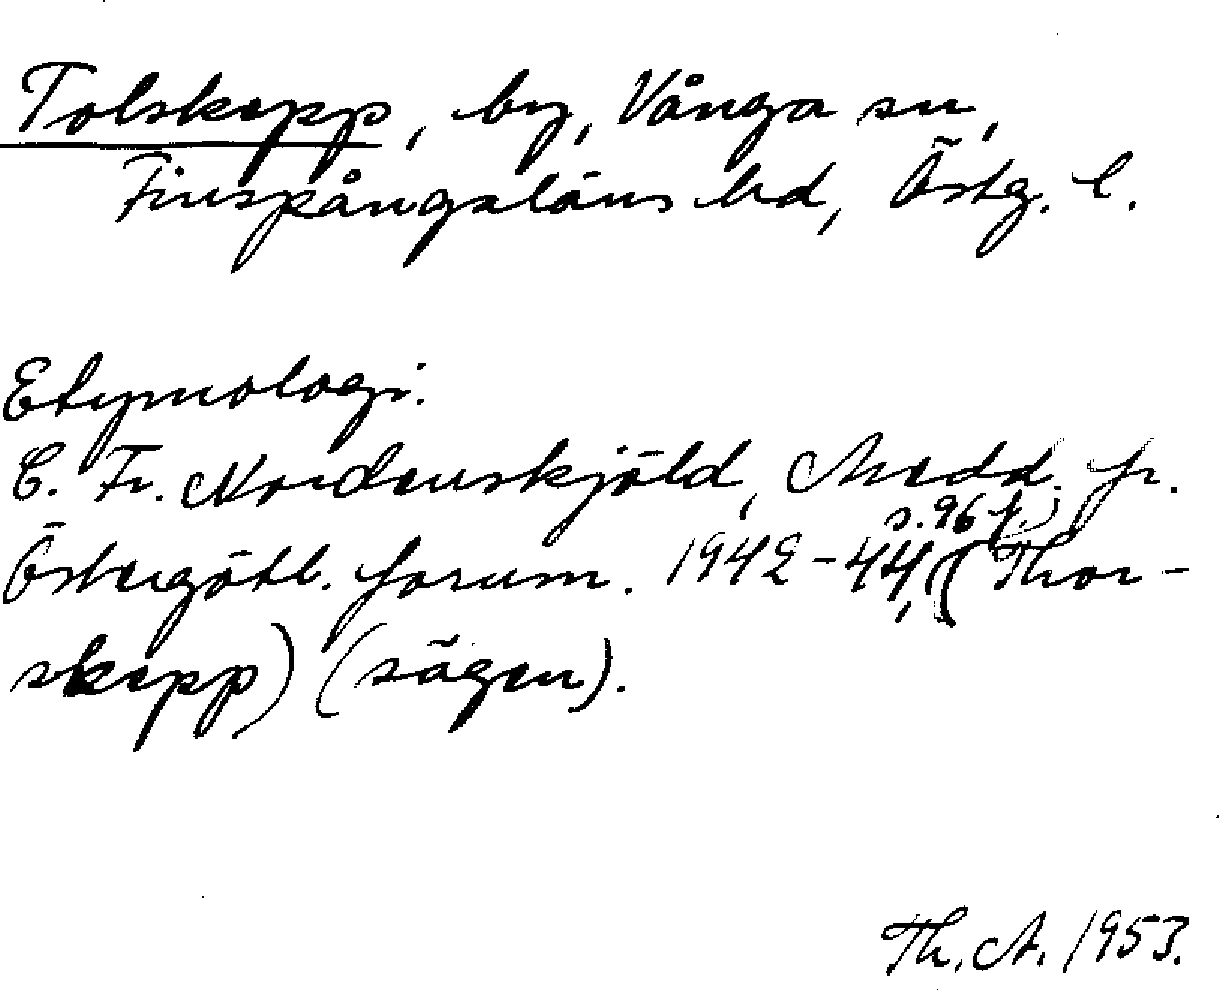 Tolskepp, by, Vånga sn,
Finspångsläns hd, Östg. l.
Etymologi:
C. Fr. Nordenskjöld, Medd. fr.
Östergötl. fornm. 1942-44, s. 96 f. (Thor-
skepp) (sägen).
Th. A. 1953.